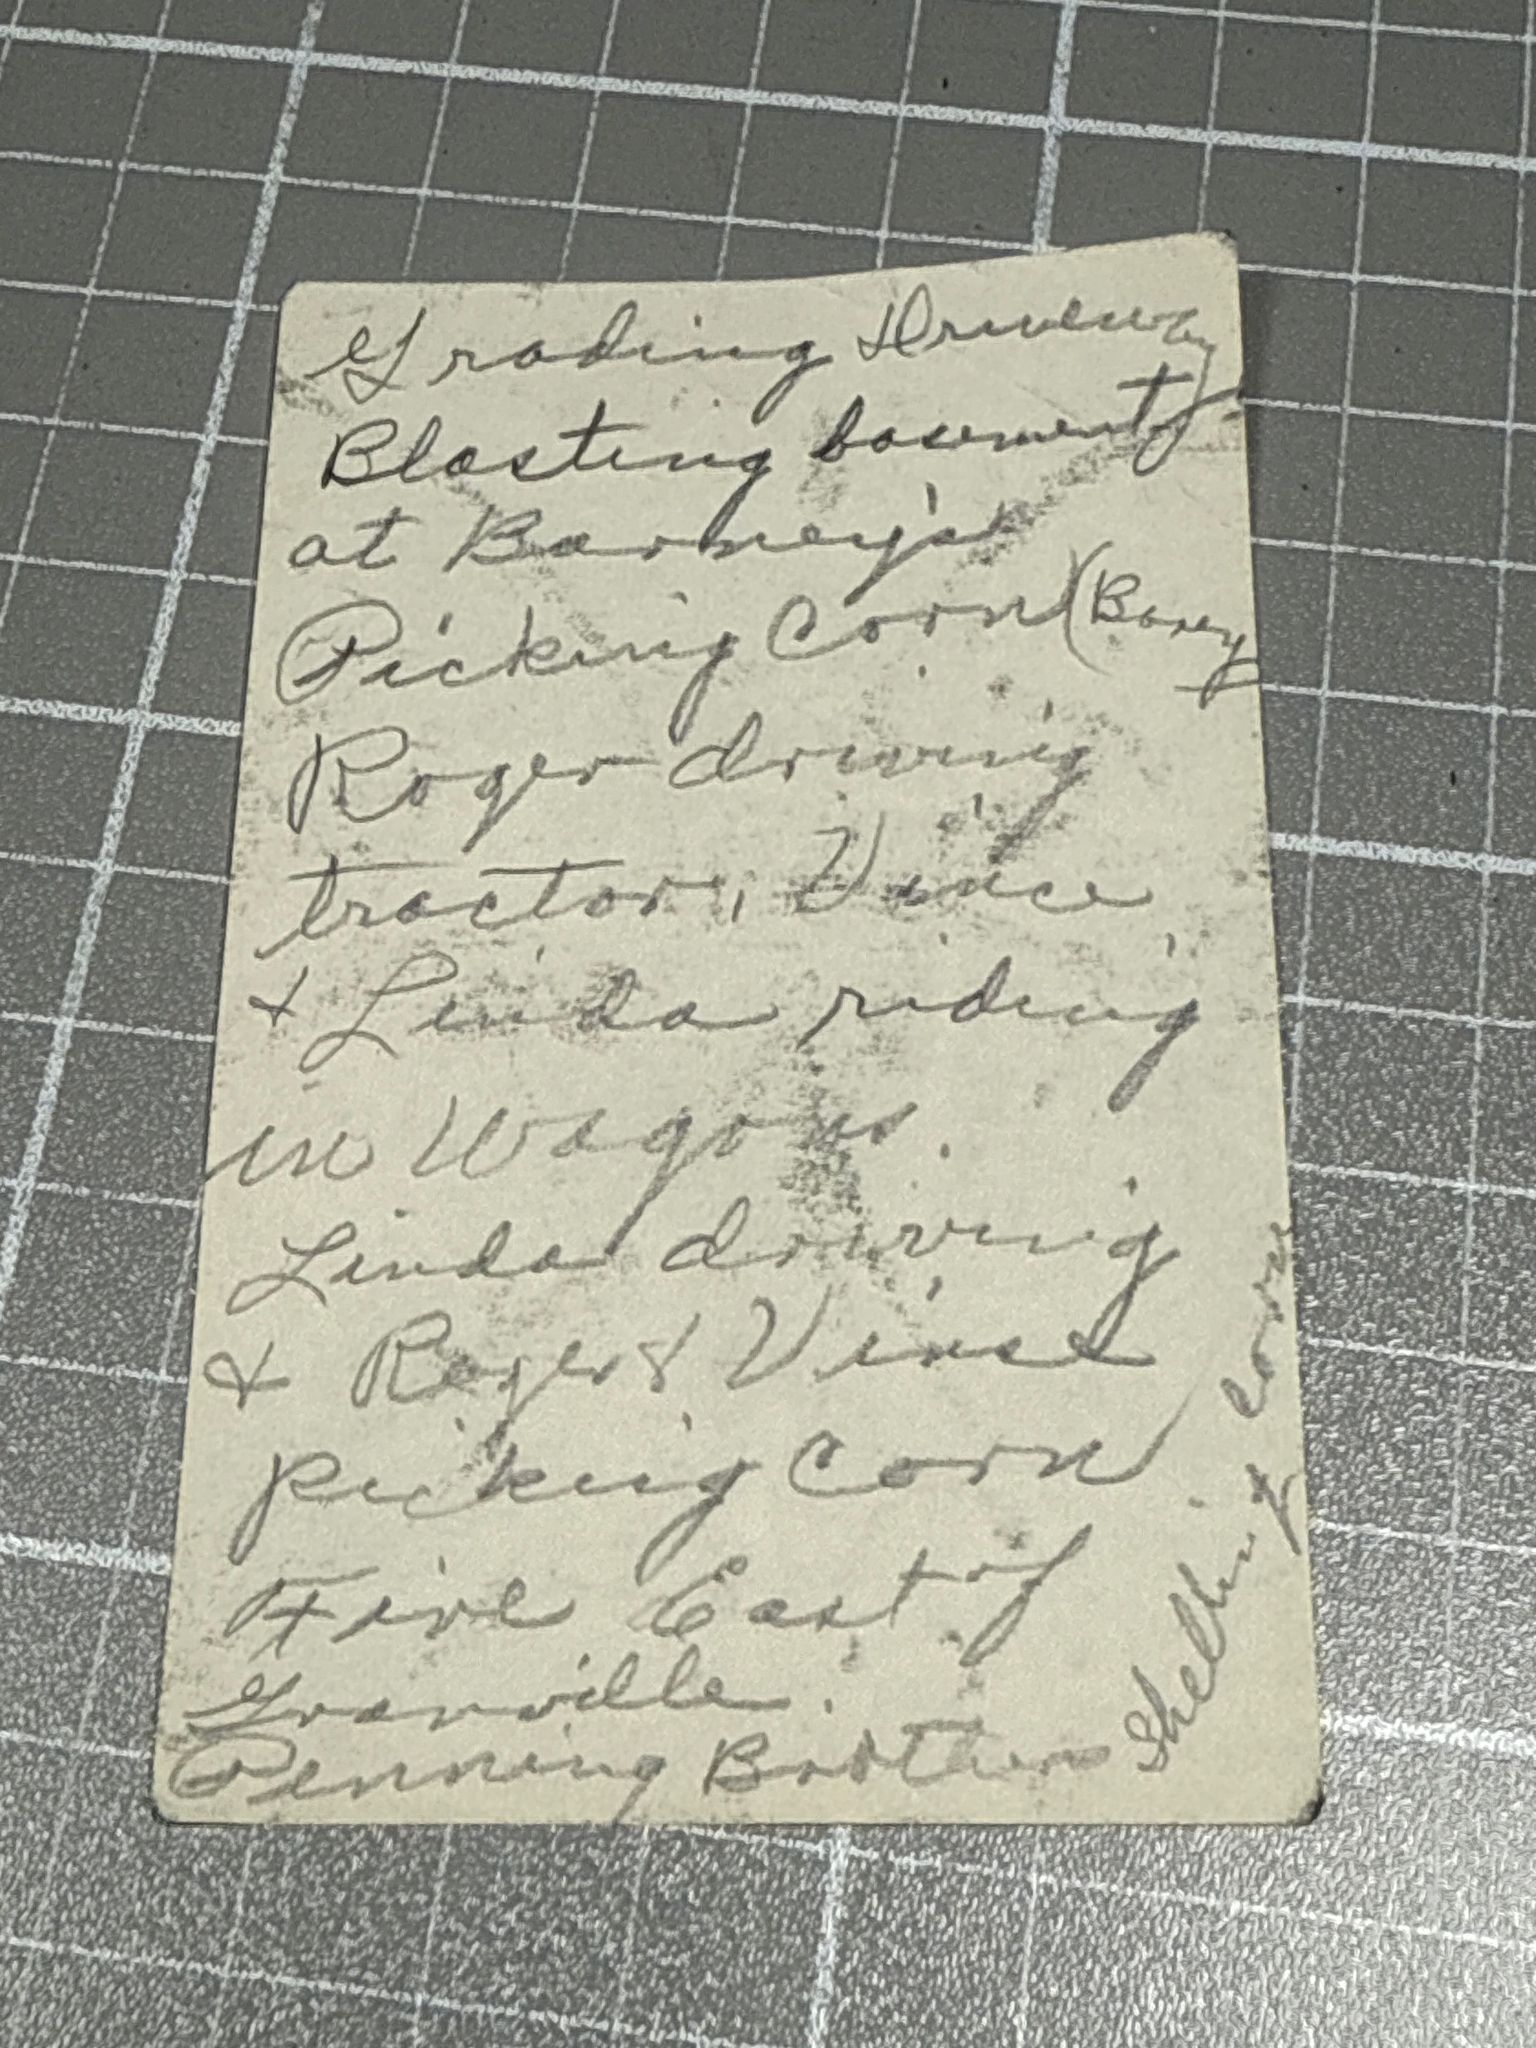 Grading Driveway
Blasting basement
at Barney's
Picking Corn (Barry
Roger driving
tractor, Vince
& Linda riding
in Wagons.
Linda driving
& Roger & Vince
picking Corn
Fire East of
Granville.
Penning Brothers
Shelling corn